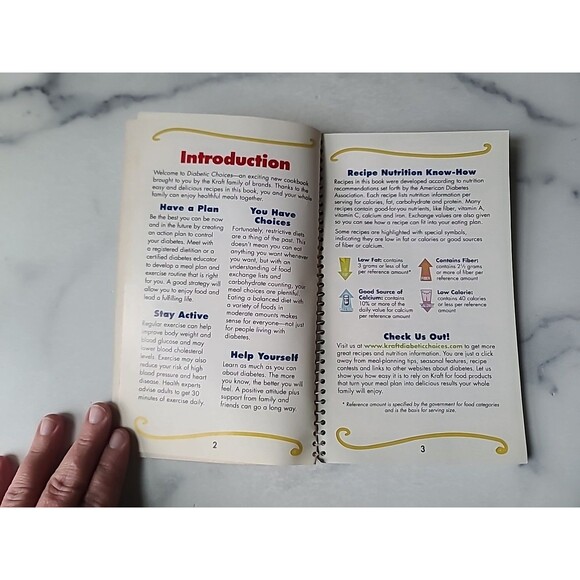 Introduction
Welcome to Diabetic Choices—an exciting new cookbook
brought to you by the Kraft family of brands. Thanks to the
easy and delicious recipes in this book, you and your whole
family can enjoy healthful meals together.
Have a Plan
Be the best you can be now
and in the future by creating
an action plan to control
your diabetes. Meet with
a registered dietitian or a
certified diabetes educator
to develop a meal plan and
exercise routine that is right
for you. A good strategy will
allow you to enjoy food and
lead a fulfilling life.
Stay Active
Regular exercise can help
improve body weight and
blood glucose and may
lower blood cholesterol
levels. Exercise may also
reduce your risk of high
blood pressure and heart
disease. Health experts
advise adults to get 30
minutes of exercise daily.
You Have
Choices
Fortunately, restrictive diets
are a thing of the past. This
doesn't mean you can eat
anything you want whenever
you want, but with an
understanding of food
exchange lists and
carbohydrate counting, your
meal choices are plentiful.
Eating a balanced diet with
a variety of foods in
moderate amounts makes
sense for everyone—not just
for people living with
diabetes.
Help Yourself
Learn as much as you can
about diabetes. The more
you know, the better you will
feel. A positive attitude plus
support from family and
friends can go a long way.
2
Recipe Nutrition Know-How
Recipes in this book were developed according to nutrition
recommendations set forth by the American Diabetes
Association. Each recipe lists nutrition information per
serving for calories, fat, carbohydrate and protein. Many
recipes contain good-for-you nutrients, like fiber, vitamin A,
vitamin C, calcium and iron. Exchange values are also given
so you can see how a recipe can fit into your eating plan.
Some recipes are highlighted with special symbols,
indicating they are low in fat or calories or good sources
of fiber or calcium.
Low Fat: contains
3 grams or less of fat
per reference amount*
Contains Fiber:
contains 2½ grams
or more of fiber per
reference amount
Good Source of
Calcium: contains
10% or more of the
daily value for calcium
per reference amount
Low Calorie:
contains 40 calories
or less per reference
amount
Check Us Out!
Visit us at www.kraftdiabeticchoices.com to get more
great recipes and nutrition information. You are just a click
away from meal-planning tips, seasonal features, recipe
contests and links to other websites about diabetes. Let us
show you how easy it is to rely on Kraft for food products
that turn your meal plan into delicious results your whole
family will enjoy.
* Reference amount is specified by the government for food categories
and is the basis for serving size.
3